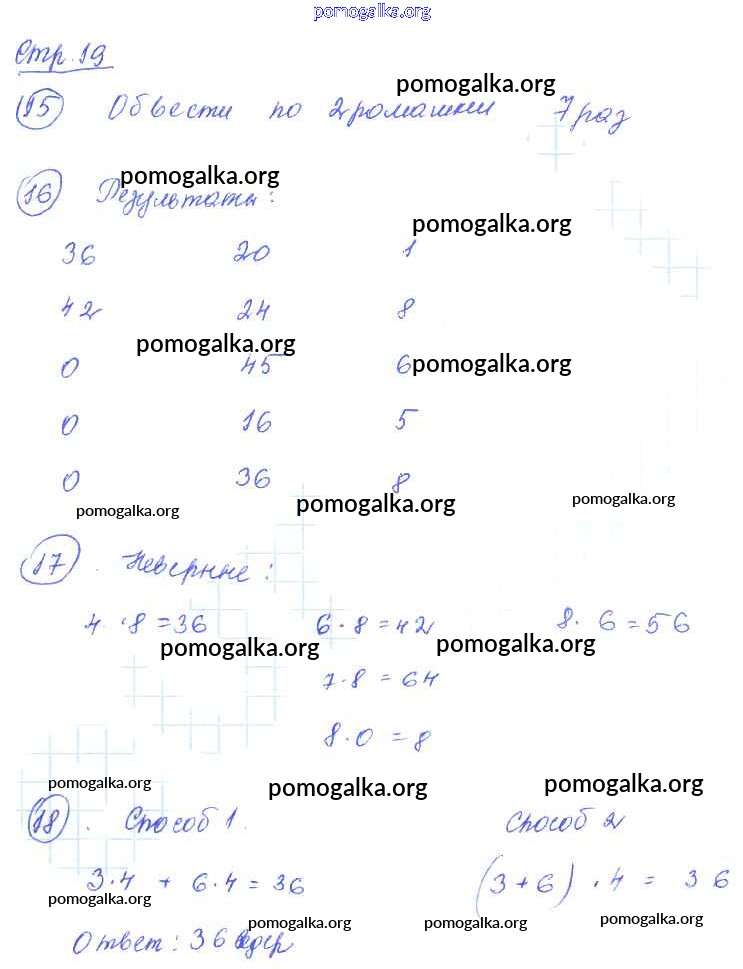 pomogalka.org
Стр. 19
pomogalka.org
15 Обвести по 2 ромашки 7 раз
pomogalka.org
16 Результаты:
pomogalka.org
36 20 1
42 24 8
pomogalka.org
0 45 6 pomogalka.org
0 16 5
0 36 8
pomogalka.org pomogalka.org pomogalka.org
17. Неверные:
4 · 8 = 36 6 · 8 = 42 8 · 6 = 56
pomogalka.org pomogalka.org
7 · 8 = 64
8 · 0 = 8
pomogalka.org pomogalka.org pomogalka.org
18. Способ 1. Способ 2
3 · 4 + 6 · 4 = 36 (3 + 6) · 4 = 36
pomogalka.org
pomogalka.org pomogalka.org pomogalka.org
Ответ: 36